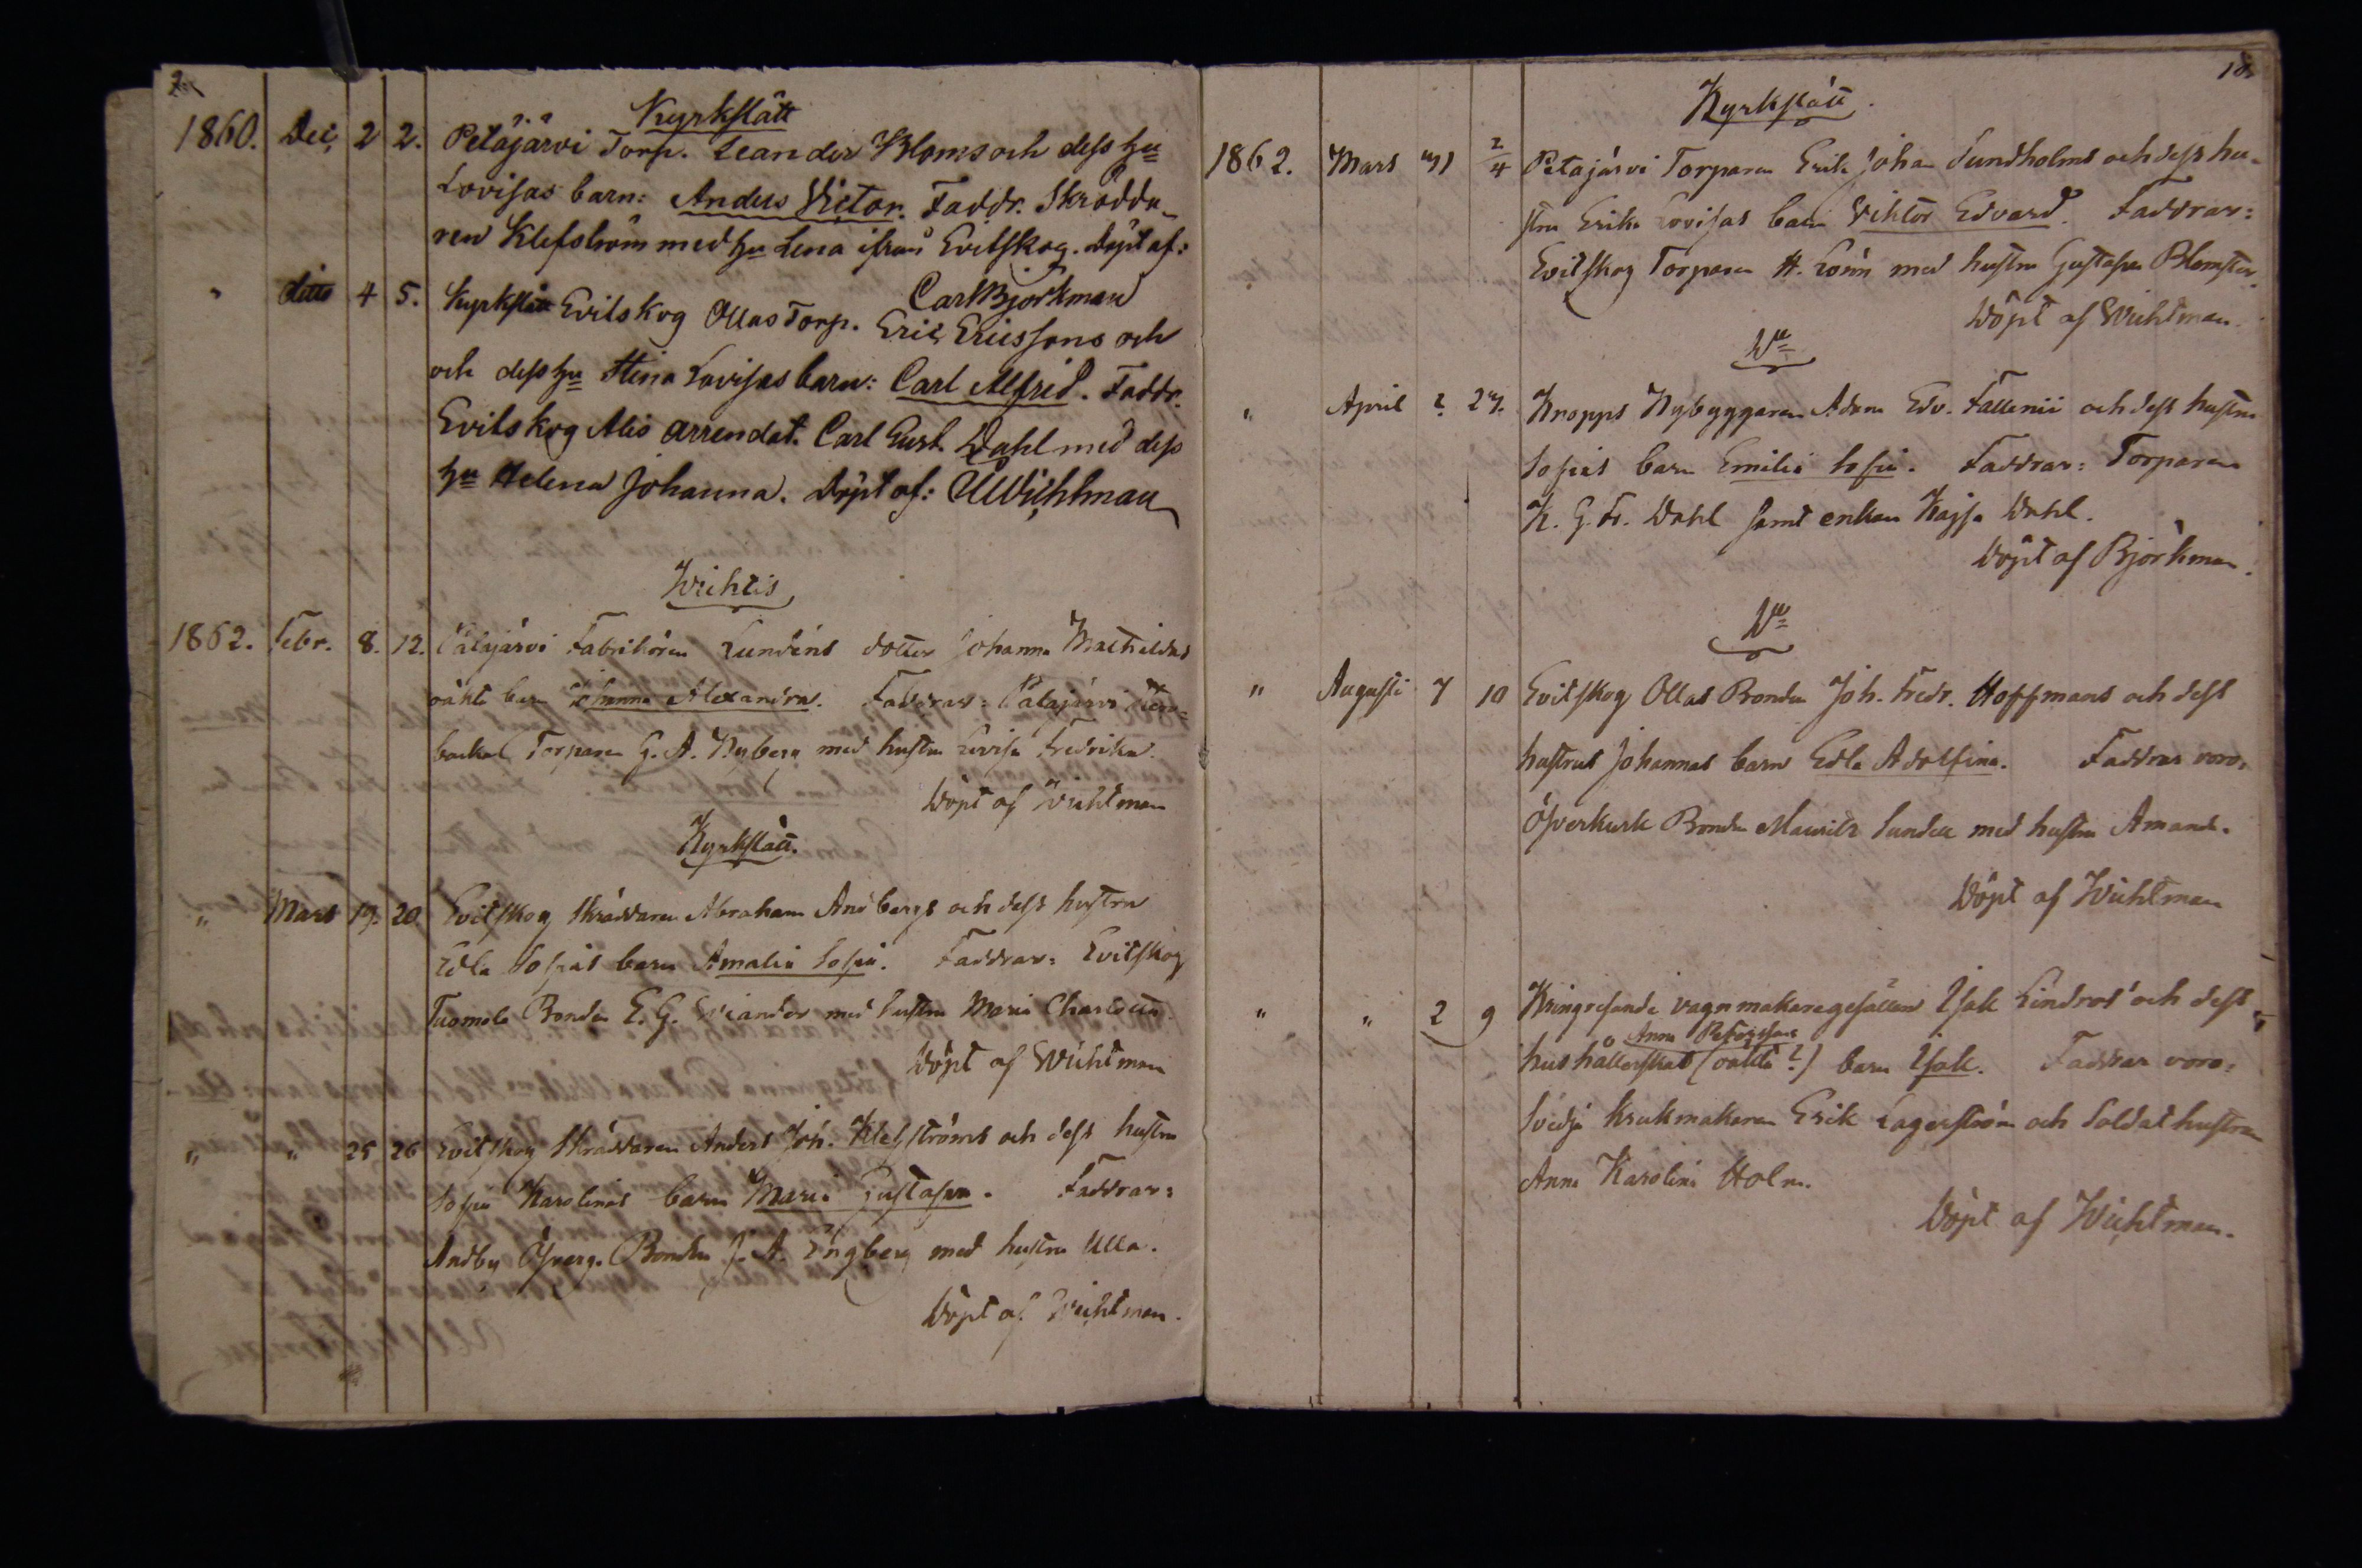 Kyrkslätt
1860. Dec. 2 2. Petäjärvi Torp. Leander Bloms och dess hu
Lovisas barn: Anders Victor. Faddr. Skrädda-
ren Klefström med hu Lena ifrån Evitskog. Döpt af:
Carl Björkman
" ditto 4 5. Kyrkslätt Evitskog Ollas Torp. Eric Ericssons och
och dess hu Stina Lovisas barn: Carl Alfrid. Faddr.
Evitskog Alis arrendat. Carl Gust. Dahl med dess
hu Helena Johanna. Döpt af: Wichtman
Wichtis
1862. Febr. 8. 12. Pätäjärvi Fabrikören Lundéns dotter Johanna Mathildas
oäkta barn Johanna Alexandra. Faddrar: Pätäjärvi
backas Torparen G. A. Nyberg med hustru Lovisa Fredrika.
Döpt af Wichtman
Kyrkslätt.
" Mars 19. 20. Evitskog Skräddaren Abraham Andbergs och dess hustru
Edla Sofias barn Amalia Sofia. Faddrar: Evitskog
Tuomola Bonden E. G. med hustru Maria Charlotta.
Döpt af Wichtman
" " 25 26 Evitskog Skräddaren Anders Joh. Klefströms och dess hustru
Sofia Karolinas barn Maria Gustafva. Faddrar:
Andby Öfverg. Bonden J. A. Engberg med hustru Ulla.
Döpt af Wichtman.
18
Kyrkslätt.
1862. Mars 2/4 Petäjärvi Torparen Erik Johan Sundholms och dess hu-
stru Erika Lovisas barn Viktor Edvard. Faddrar:
Evitskog Torparen H. Lönn med hustru Gustafva Blomster.
Döpt af Wichtman.
" April 2. 27. Knopps Nybyggaren Adam Edv. Fallenii och dess hustru
Sofias barn Emilia Sofia. Faddrar: Torparen
K. G. Fr. Dahl samt enkan Kajsa Dahl.
Döpt af Björkman.
" Augusti 7 10 Evitskog Ollas Bonden Joh. Fredr. Hoffmans och dess
hustrus Johannas barn Edla Adolfina. Faddrar voro:
Öfverkurk Bonden Maurits Sundell med hustru Amanda.
Döpt af Wichtman
" " 2 9 Kringresande vagnmakaregesällen Isak Lindros' och dess
Anna Petersons
hushållerskas (oäkta?) barn Isak. Faddrar voro:
Svedja Krukmakaren Erik Lagerström och Soldat hustrun
Anna Karolina Holm.
Döpt af Wichtman.